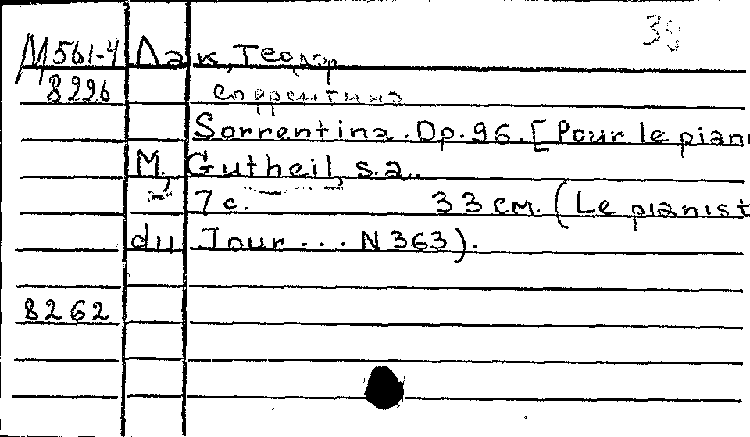 38
М561-4 Лак, Теодор
8296 соррентина
Sorrentina. Op. 96. [Pour le pian
M., Gutheil, s.a.
7 с. 33 см. (Le pianist
du Jour... N 363).
8262